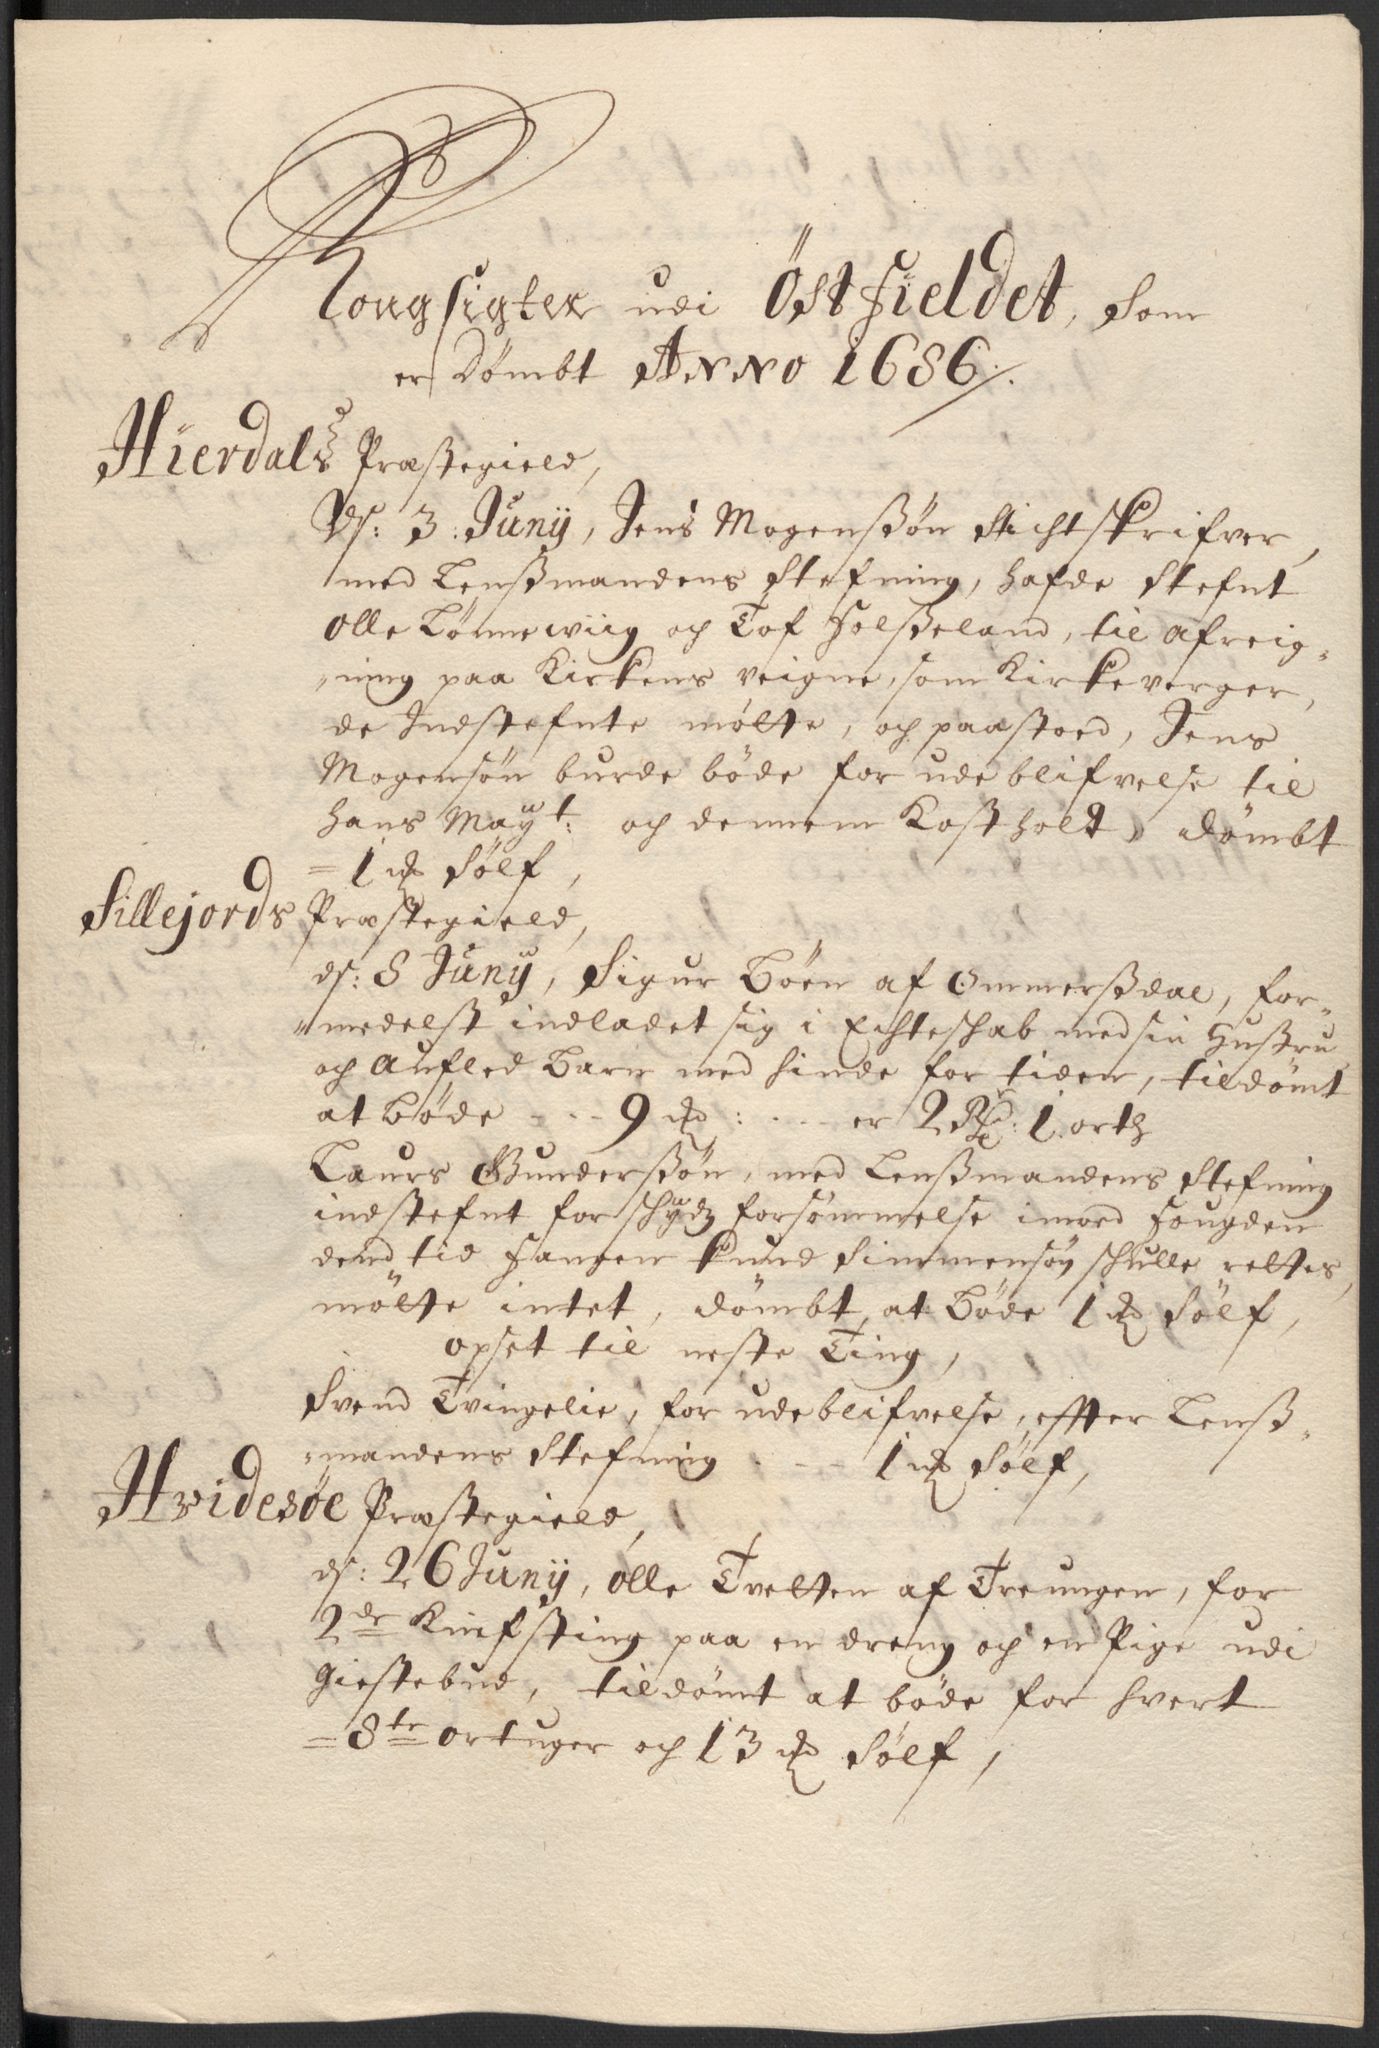 Kongsigter udi Östfieldet, som
er Dömbt ANNO 1686./.
Hierdals Præstegield,
Ds: 3: Juny, Jens Mogensßön Stichtskrifver,
med Lensßmandens Stefning, hafde Stefnt
Olle Lönnewiig och Tof Helßeland, til afreig„
„ning paa Kirkens veigne, som Kirkeverger,
de Indstefnte mötte, och paastoed, Jens
Mogensön burde böde for udeblifvelse til
hans Mayt: och dennem Kostholt, dömbt
= 1 lod Sölf,
Sillejords Præstegield,
ds: 8 Juny, Sigur Böen af Ommersßdal, for„
„medelst indladet sig i Echteschab med sin Hustru
och Aufled Barn med hinde for tiden, tildömt
at Böde - - - 9 lod : - - - er 2 Rdr: 1 orth
Laurs Gundersßön, med Lensßmandens Stefning
indstefnt for schydtz forsömmelse imod Fougden
dend tid Fangen Knud Simmensön schulle rettes,
mötte intet, dömbt at Böde 1 lod Sölf,
opset til neste Ting,
Svend Tvingelie, for udeblifvelse, effter Lensß„
„mandens Stefning - - - 1 lod Sölf,
Hvidesöe Præstegield,
ds: 26 Juny, Olle Tveitten af Treungen, for
2de Knifsting paa en dreng och en Pige udi
Giestebud, tildömt at böde for hvert
= 8te ortuger och 13 lod Sölf,